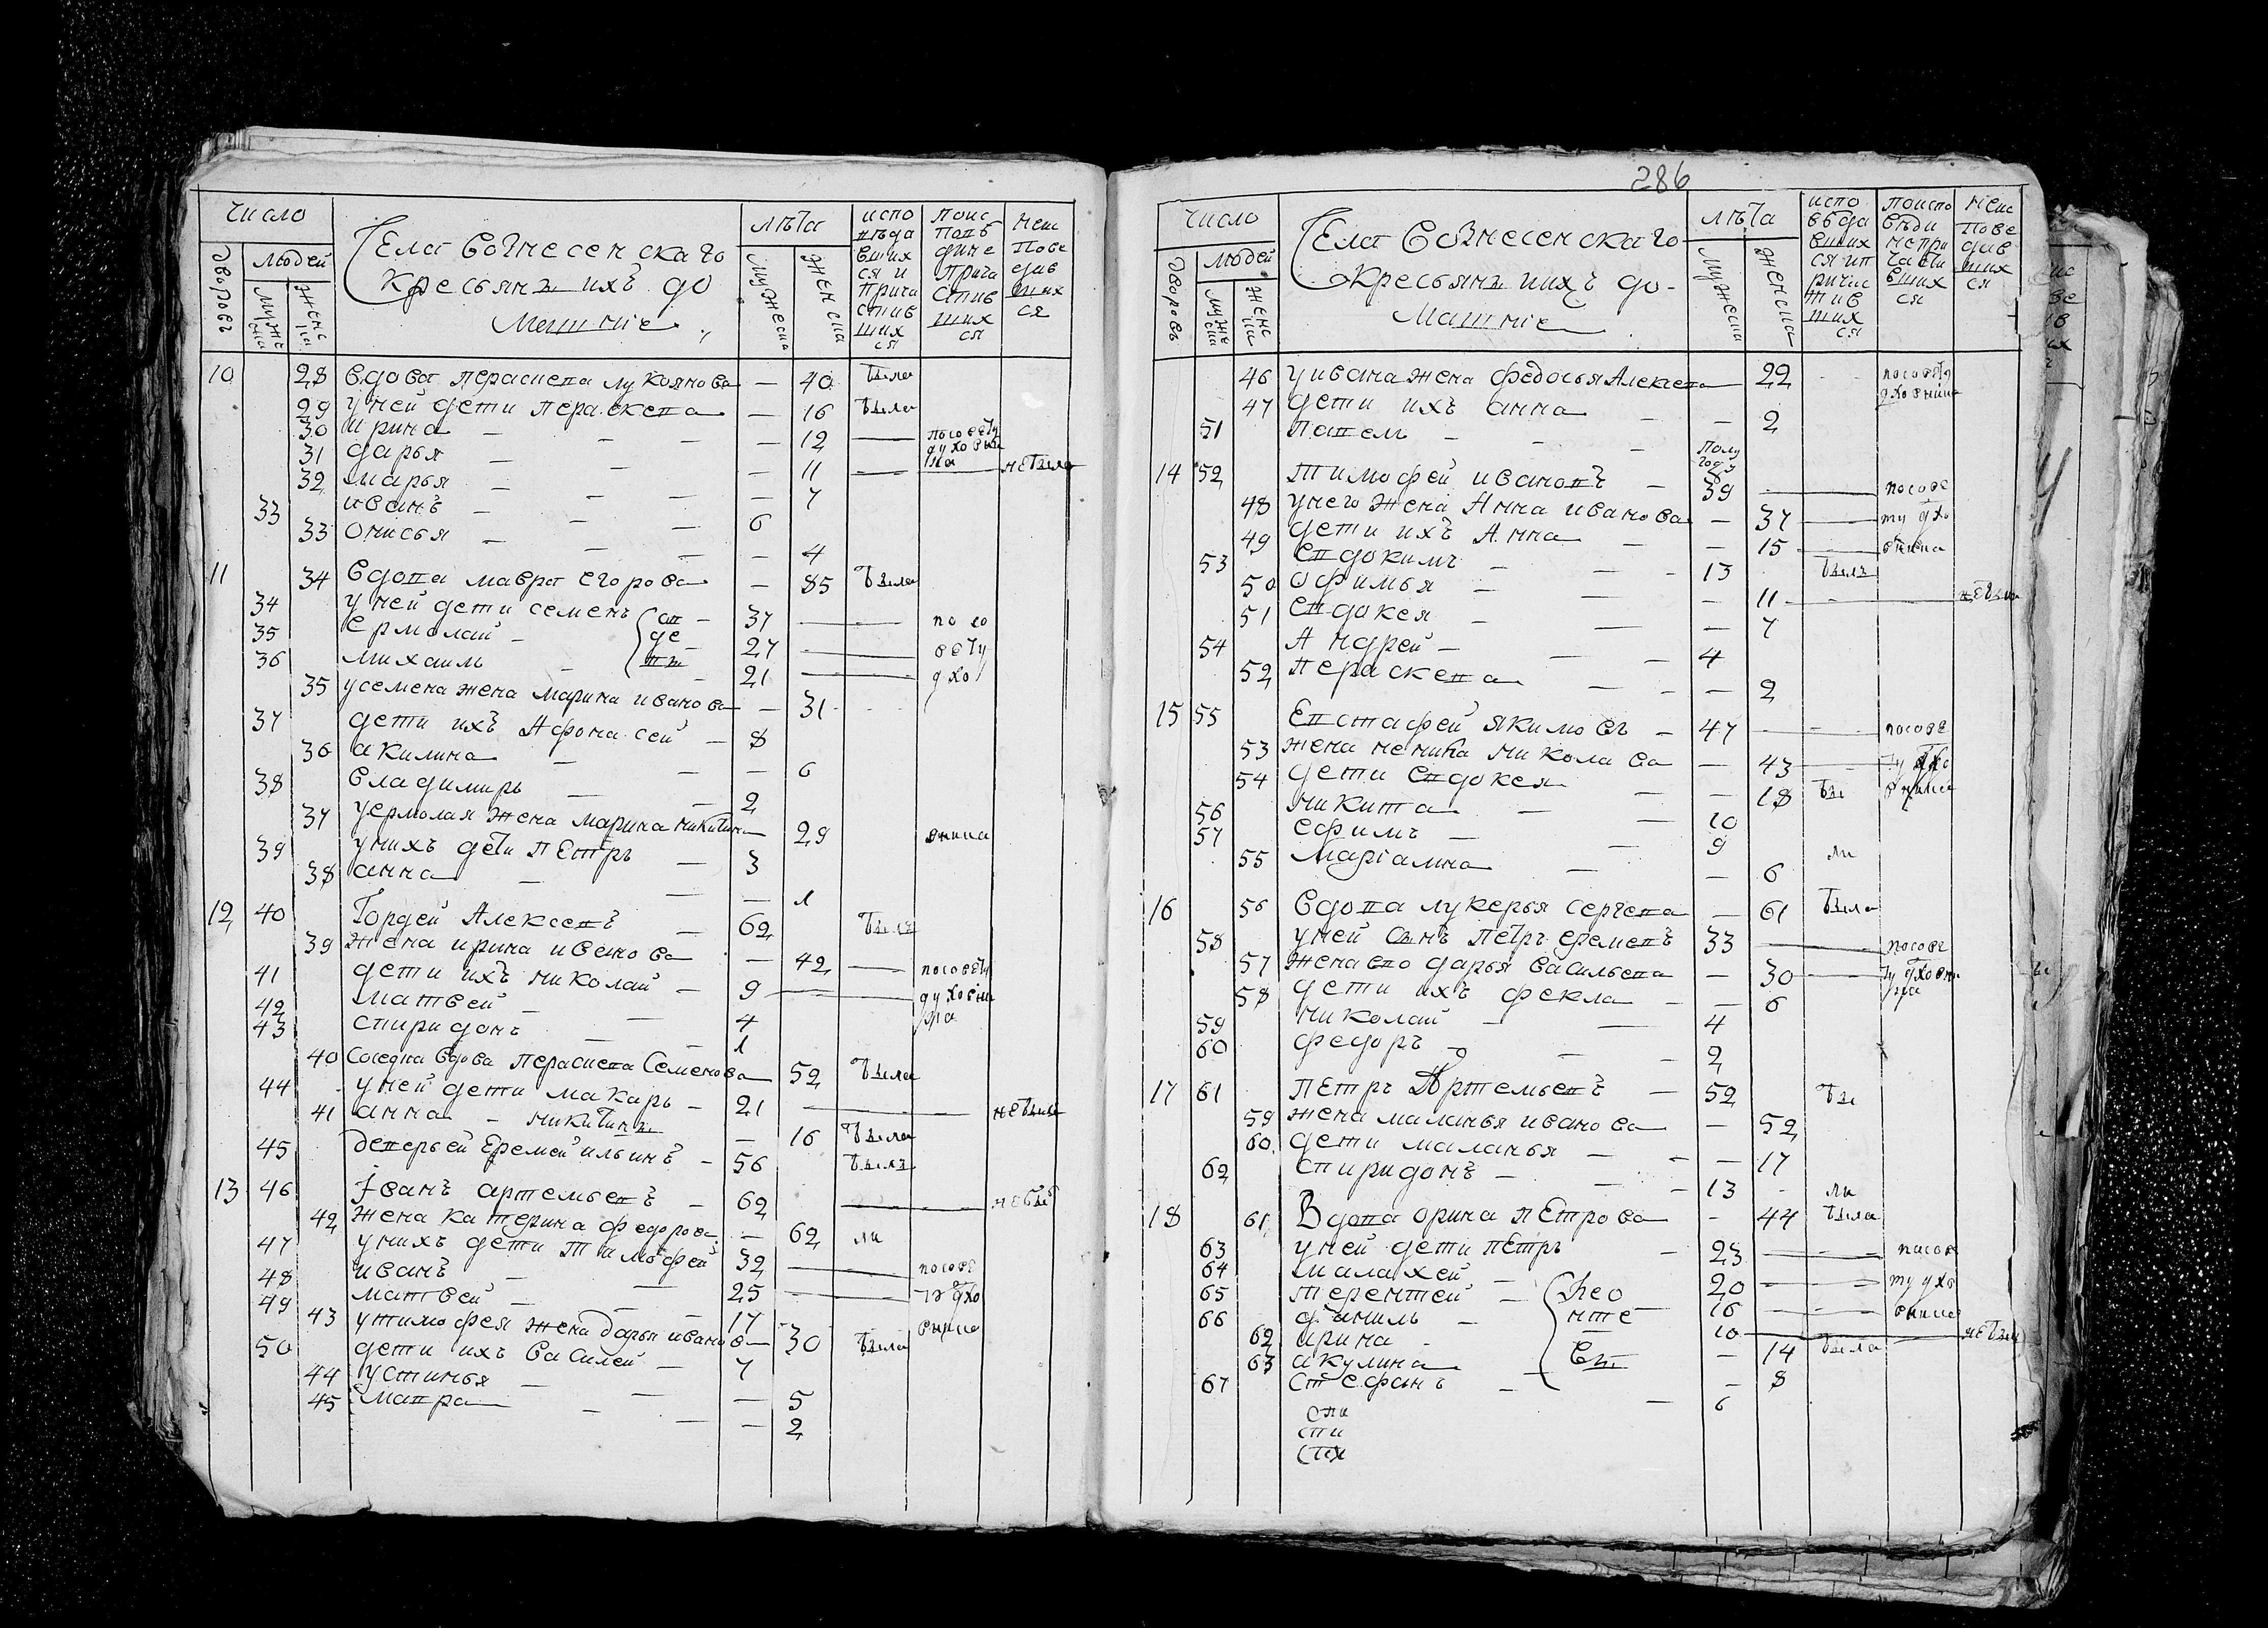 Число
Дворовъ
людей
мужеска
женска
Села вознесенскаго
крестьянъ ихъ до
машние
лѣта
мужеска
женска
испо
вѣда
вших
ся и
прича
стив
ших
ся
не испо
ведав
ших
ся
10 28 вдова парасковя лукоянова — 40 была
29 у ней дети параскева — 16 была
30 ирина — 12 посовету
31 дарья — 11 духовни
ка не была
32 марья — 7
33 иванъ — 6
33 онисья — 4
11 34 вдова мавра егорова — 85 была
34 у ней дети семенъ 37 по со
35 ермолай 27 вету
36 михаилъ 21 дхо
35 у семена жена марина иванова — 31
37 дети ихъ Афонасей — 8
36 акилина — 6
38 владимиръ — 2
37 у ермолая жена марина никитина 29 вника
39 у нихъ дети петръ — 3
38 анна — 1
12 40 Гордей Алексеевъ — 62 былъ
39 жена ирина иванова — 42 посовету
41 дети ихъ николай — 9 духовни
42 матвей — 4 ка
43 спиридонъ — 1
40 соседка вдова параскева Семенова 52 была
44 у ней дети макаръ — 21 не были
41 анна — никитины — 16 была
45 деверь ей Еремей ильинъ — 56 былъ
13 46 Iванъ артемьевъ — 62 не был
42 жена катерина федорова — 62 ли
47 у нихъ дети тимофей 32 посове
48 иванъ — 25 ту дхо
49 матвей — 17 вника
43 у тимофея жена дарья иванова 30 была
50 дети ихъ василей — 7
44 устинья — 5
45 мавра — 2
286
Число
Дворовъ
людей
мужеска
женска
Села вознесенскаго
крестьянъ ихъ до-
машние
лѣта
мужеска
женска
испо
вѣда
вших
ся и п
ричас
тив
ших
ся
поиспо
вѣди
непри
части
вших
ся
неис
пове
дав
ших
ся
46 у ивана жена федосья Алексева 22 посовету
47 дети ихъ анна — 2 дховника
51 павелъ — полу
году
14 52 тимофей ивановъ — 39 посове
48 у него жена Анна иванова — 37 ту дхо
49 дети ихъ Анна — 15 вника
53 евдокимъ — 13 былъ
50 офимья — 11 не была
51 евдокея — 7
54 Андрей — 4
52 параскева — 2
15 55 Евстафей якимовъ — 47 посове
53 жена ненила николаева — 43 ту дхо
54 дети евдокея — 18 бы вника
56 никита — 10
57 ефимъ — 9 ли
55 мариамна — 6
16 56 вдова лукерья сергева — 61 была
58 у ней сынъ петръ еремевъ 33 посове
57 жена ево дарья васильева — 30 ту дховни
58 дети ихъ фекла — 6 ка
59 николай — 4
60 федоръ — 2
17 61 петръ Артемьевъ — 52 бы
59 жена маланья иванова — 52
60 дети маланья — 17
62 спиридонъ — 13 ли
18 61 Вдова орина петрова — 44 была
63 у ней дети петръ — 23 посове
64 малахей — 20 ту дхо
65 терентей — 16 вника
66 данилъ — 10 не были
62 ирина — 14 была
63 акулина — 8
67 стефанъ — 6